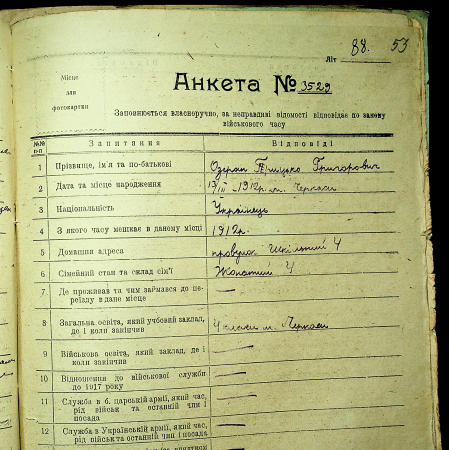 88. 53
Літ
Місце
для
фотокартки
Анкета № 3529
Заповнюється власноручно, за неправдиві відомості відповідає по закону
військового часу
№№ п-п Запитання Відповіді
1 Прізвище, ім'я та по-батькові Григорович
2 Дата та місце народження 1912р. м. Черкаси
3 Національність Українець
4 З якого часу мешкає в даному місці 1912р.
5 Домашня адреса провулок Шкільний 4
6 Сімейний стан та склад сім'ї Жонатий 4
7 Де проживав та чим займався до пе-
реїзду в дане місце —
8 Загальна освіта, який учбовий заклад,
де і коли закінчив 4 класи м. Черкаси
9 Військова освіта, який заклад, де і
коли закінчив —
10 Відношення до військової служби
до 1917 року —
11 Служба в б. царській армії, який час,
рід військ та останній чин і
посада —
12 Служба в Українській армії, який час,
рід військ та останній чин і посада —